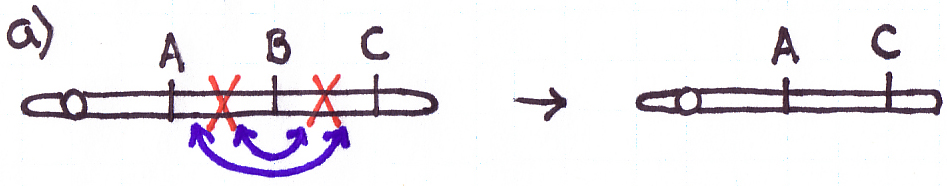 a)
A B C → A C